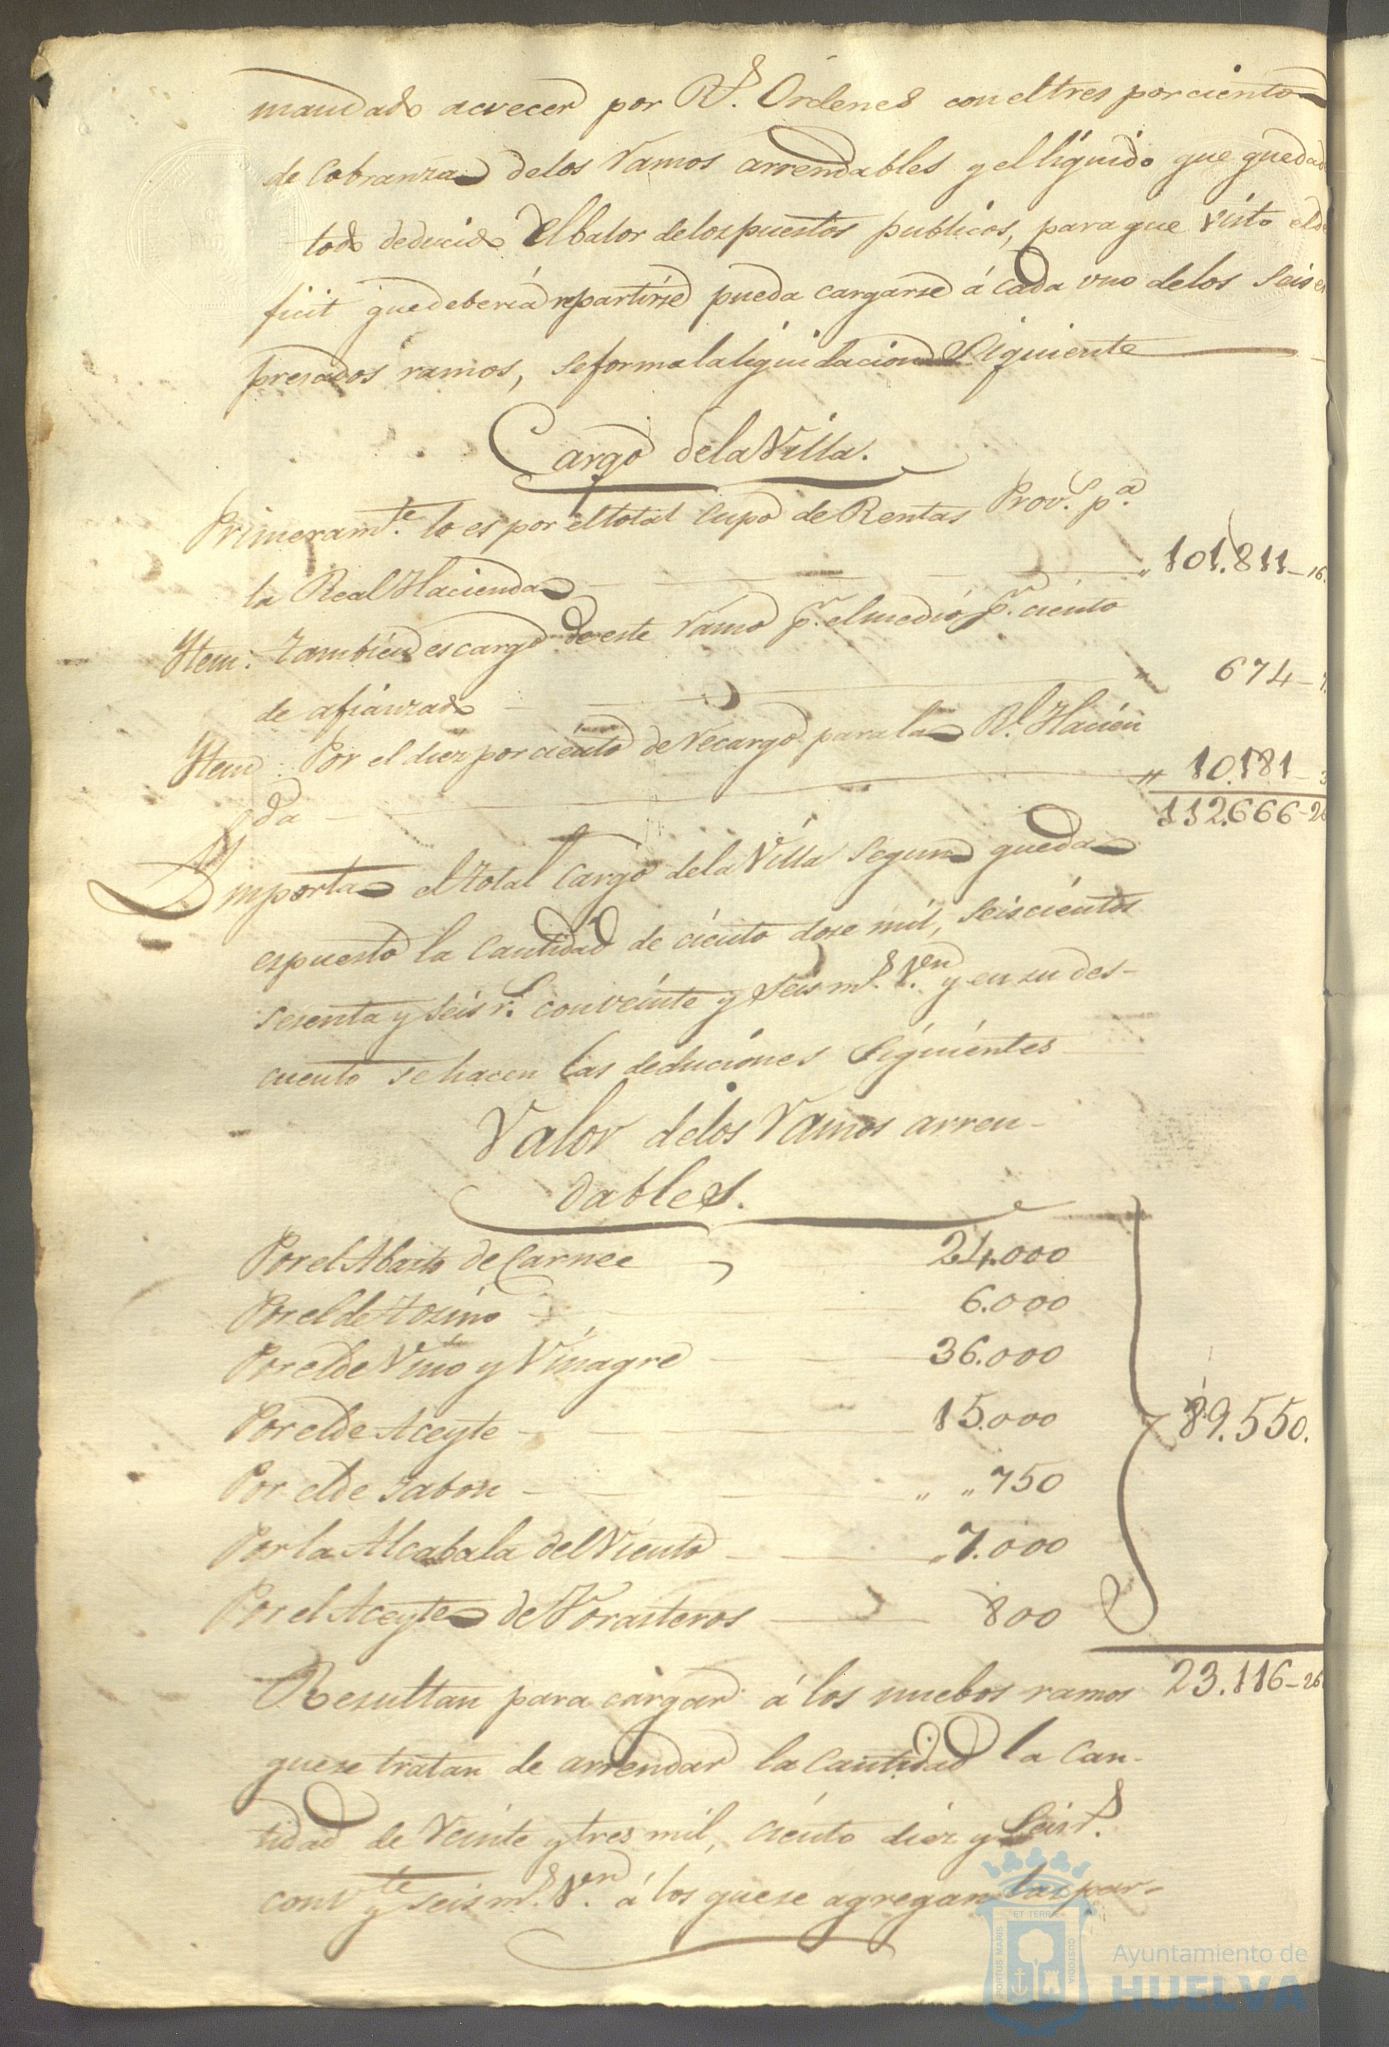 mandado acrecer por R.s Ordenes con el tres por ciento
de Cobranza de los ramos arrendables y el liquido que queda
todo deducido del balor de los puestos publicos, para que visto el de
ficit que deberia repartirse pueda cargarse á cada uno de los Seis es
presados ramos, se forma la liquidacion Siguiente
Cargo de la Villa.
Primeram.te lo es por el total Cupo de Rentas Prov.s p.a
la Real Hacienda " 101.811-16.
Item: Tambien es cargo de este ramo p.r el medio p.r ciento
de afianzado " 674-
Item: Por el diez por ciento de recargo para la R.l Hacien
da " 10.181-
112.666-26
Importa el total Cargo de la Villa Segun queda
espuesto la Cantidad de ciento dose mil, Seiscientos
sesenta y seis r.s con veinte y seis m.s V.en y en su des-
cuento se hacen las deduciones Siguientes
Valor de los ramos arren-
dables.
Por el Abasto de Carnes 24.000
Por el de Tosino 6.000
Por el de Vino y Vinagre 36.000
Por el de Aceyte 15.000
Por el de Jabon " " 750
89.550.
Por la Alcabala del Viento " 7.000
Por el Aceyte de Forasteros 800
Resultan para cargar á los nuebos ramos 23.116-26
que se tratan de arrendar la Cantidad la Can-
tidad de Veinte y tres mil, ciento diez y Seis r.s
con v.te y seis m.s V.en á los que se agregan las par-
PORTUS MARIS
ET TERRAE
CUSTODIA
Ayuntamiento de
HUELVA